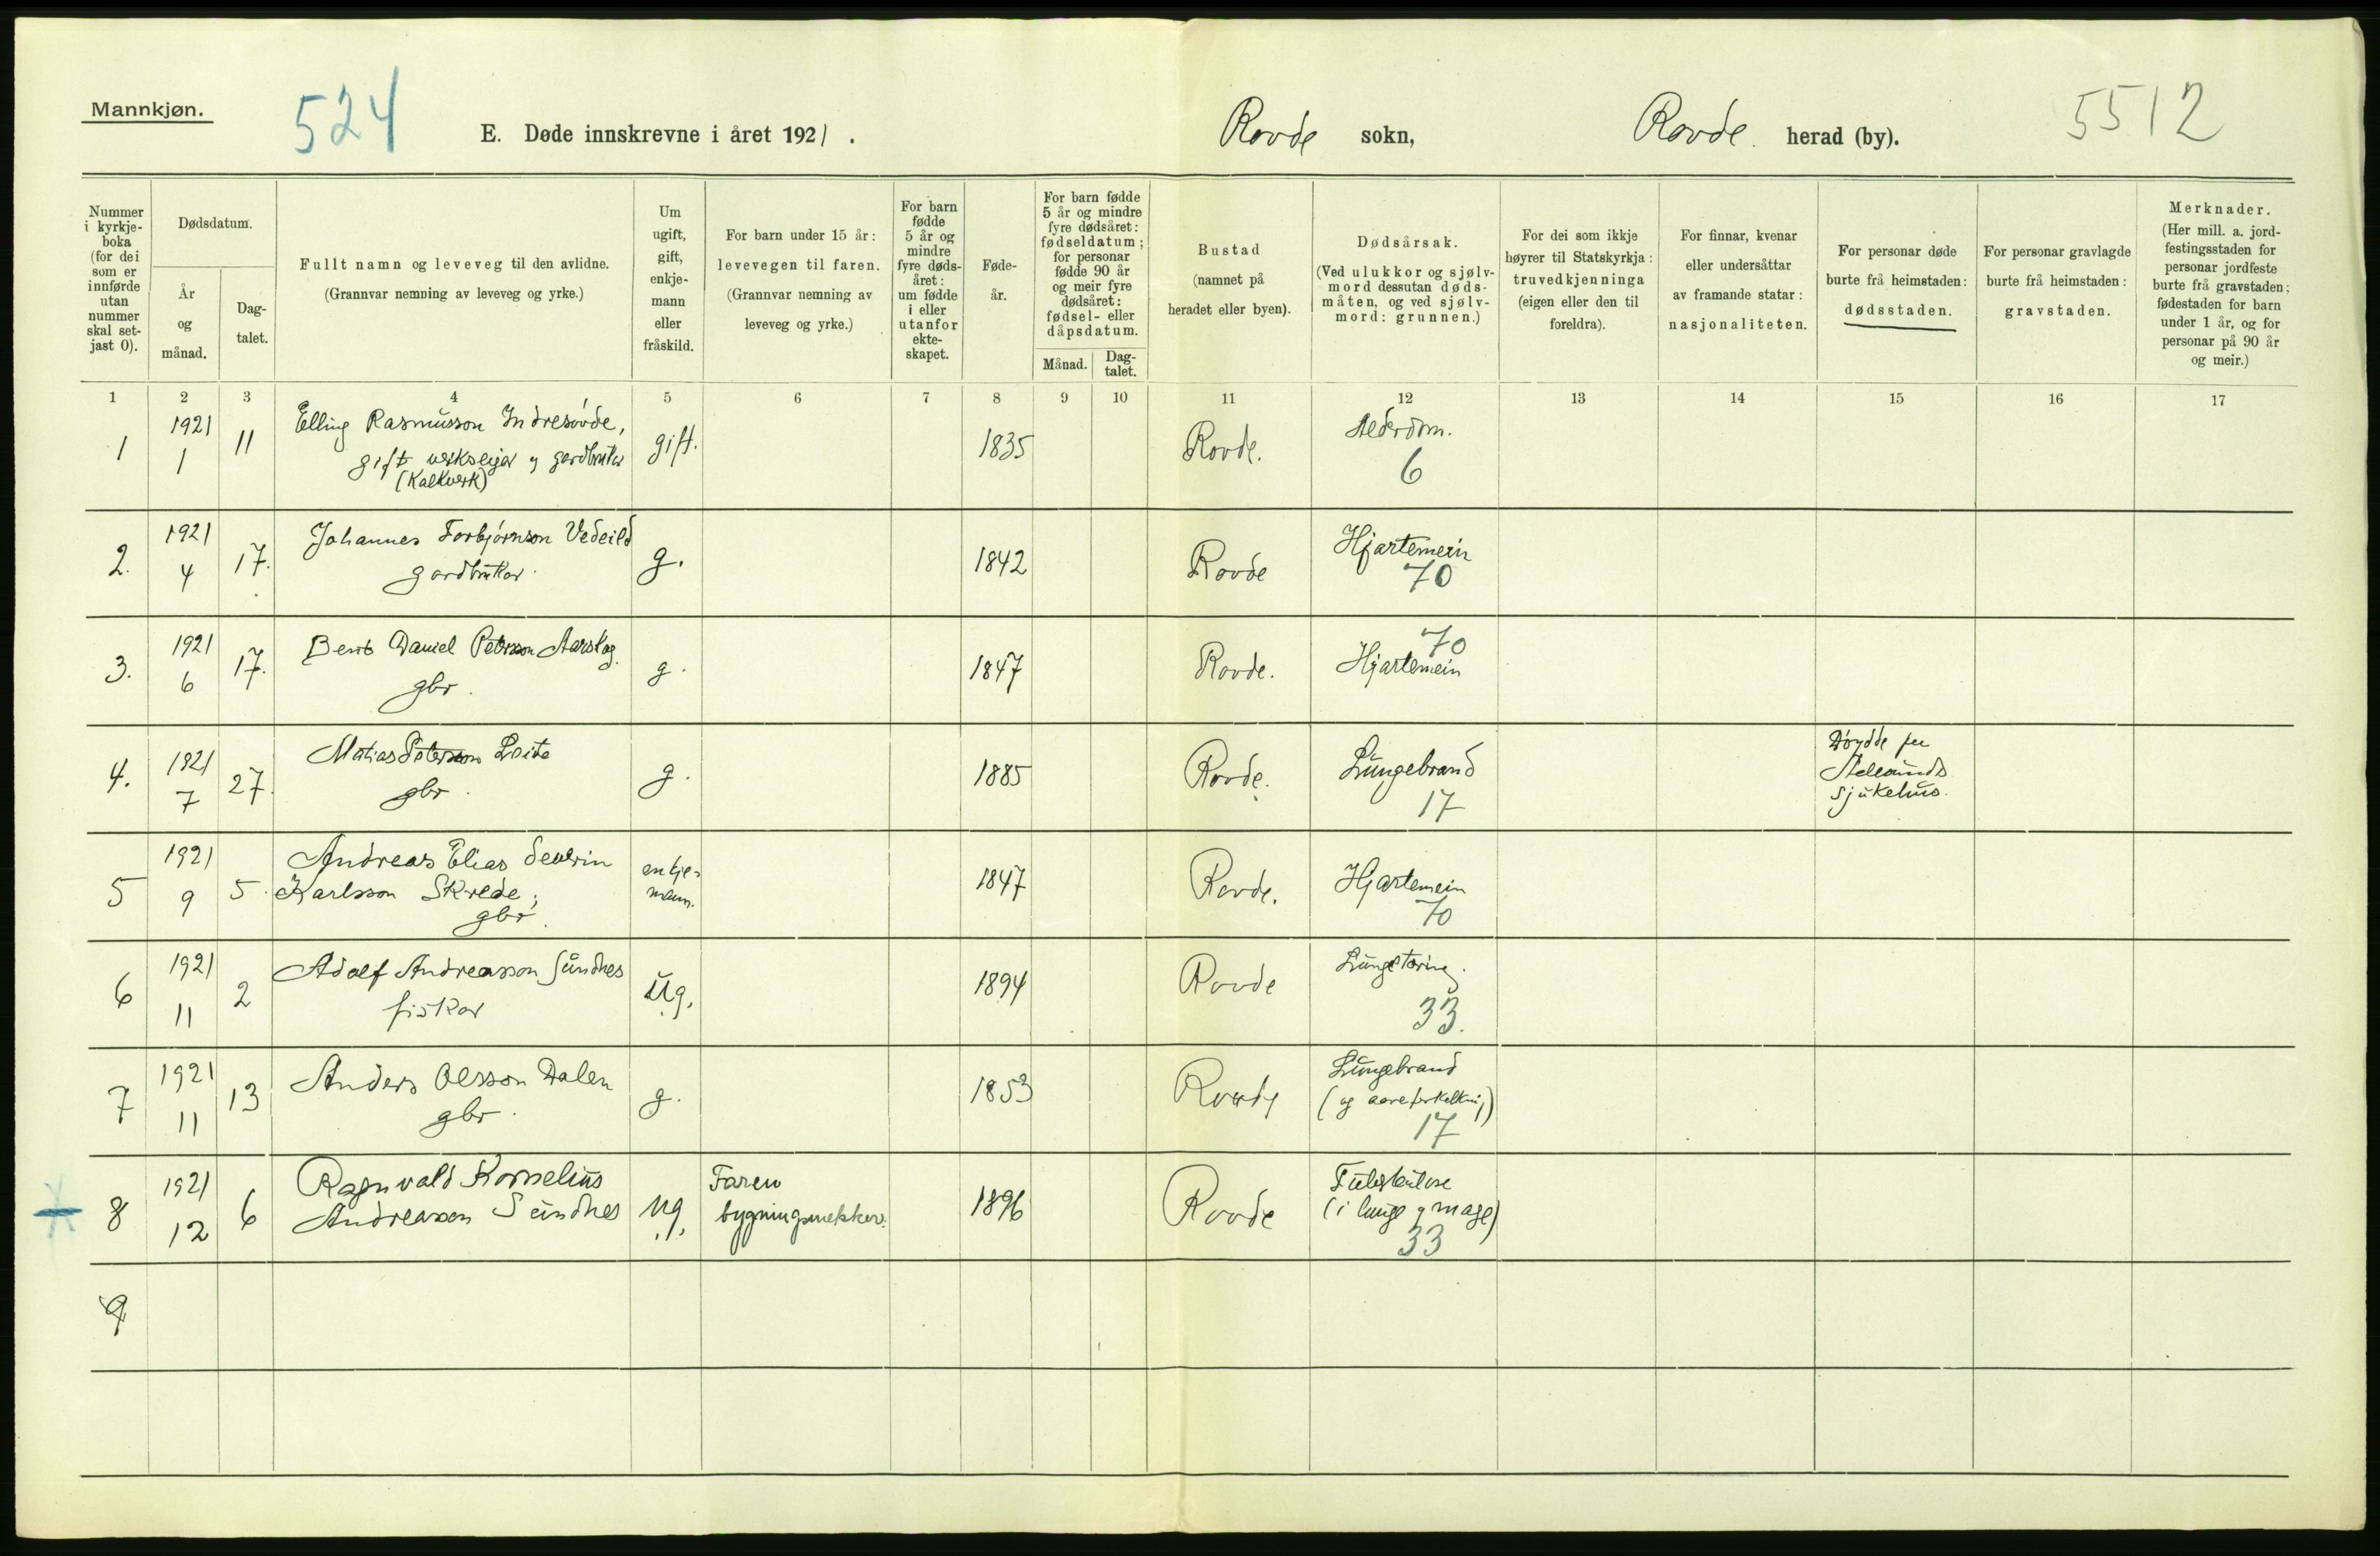 Mannkjøn.
524
E. Døde innskrevne i året 1921.
Rovde sokn,
Rovde. herad (by).
5512
Nummer
i kyrkje-
boka
(for dei
som er
innførde
utan
nummer
skal set-
jast 0).
Dødsdatum.
År
og
månad.
Dag-
talet.
Fullt namn og leveveg til den avlidne.
(Grannvar nemning av leveveg og yrke.)
Um
ugift,
gift,
enkje-
mann
eller
fråskild.
For barn under 15 år:
levevegen til faren.
(Grannvar nemning av
leveveg og yrke.)
For barn
fødde
5 år og
mindre
fyre døds-
året:
um fødde
i eller
utanfor
ekte-
skapet.
Føde-
år.
For barn fødde
5 år og mindre
fyre dødsåret:
fødseldatum;
for personar
fødde 90 år
og meir fyre
dødsåret:
fødsel- eller
dåpsdatum.
Månad.
Dag-
talet.
Bustad
(namnet på
heradet eller byen).
Dødsårsak.
(Ved ulukkor og sjølv-
mord dessutan døds-
måten, og ved sjølv-
mord: grunnen.)
For dei som ikkje
høyrer til Statskyrkja:
truvedkjenninga
(eigen eller den til
foreldra).
For finnar, kvenar
eller undersåttar
av framande statar:
nasjonaliteten.
For personar døde
burte frå heimstaden:
dødsstaden.
For personar gravlagde
burte frå heimstaden:
gravstaden.
Merknader.
(Her mill. a. jord-
festingsstaden for
personar jordfeste
burte frå gravstaden;
fødestaden for barn
under 1 år, og for
personar på 90 år
og meir.)
1 2 3 4 5 6 7 8 9 10 11 12 13 14 15 16 17
1 1921 1 11 Elling Rasmusson Indresovde,
gift verkseigar og gardbrukar
(Kalkverk)
gift. 1835 Rovde. Alderdom.
6
2. 1921 4 17. Johannes Torbjørnson Vedeild
gardbrukar.
g. 1842 Rovde Hjartemein
70
3. 1921 6 17. Bernt Daniel Petersson Aarskog.
gbr.
g. 1847 Rovde. 70
Hjartemein
4. 1921 7 27. Matias Peterson Leite
gbr.
g. 1885 Rovde. Lungebrand
17
Døydde paa
Aalesunds
sjukehus.
5 1921 9 5. Andreas Elias Severin
Karlsson Skrede,
gbr.
enkje-
mann.
1847 Rovde. Hjartemein
70
6 1921 11 2 Adolf Andreasson Sundnes
fiskar
Ug. 1894 Rovde Lungetæring.
33.
7 1921 11 13 Anders Olsson Dalen
gbr.
g. 1853 Rovde Lungebrand
(og aareforkalkning)
17
8 1921 12 6 Ragnvald Kornelius
Andreasson Sundnes
ug. Faren
bygningsnekker.
1896 Rovde Tuberkulose
(i lunge og mage)
33
9